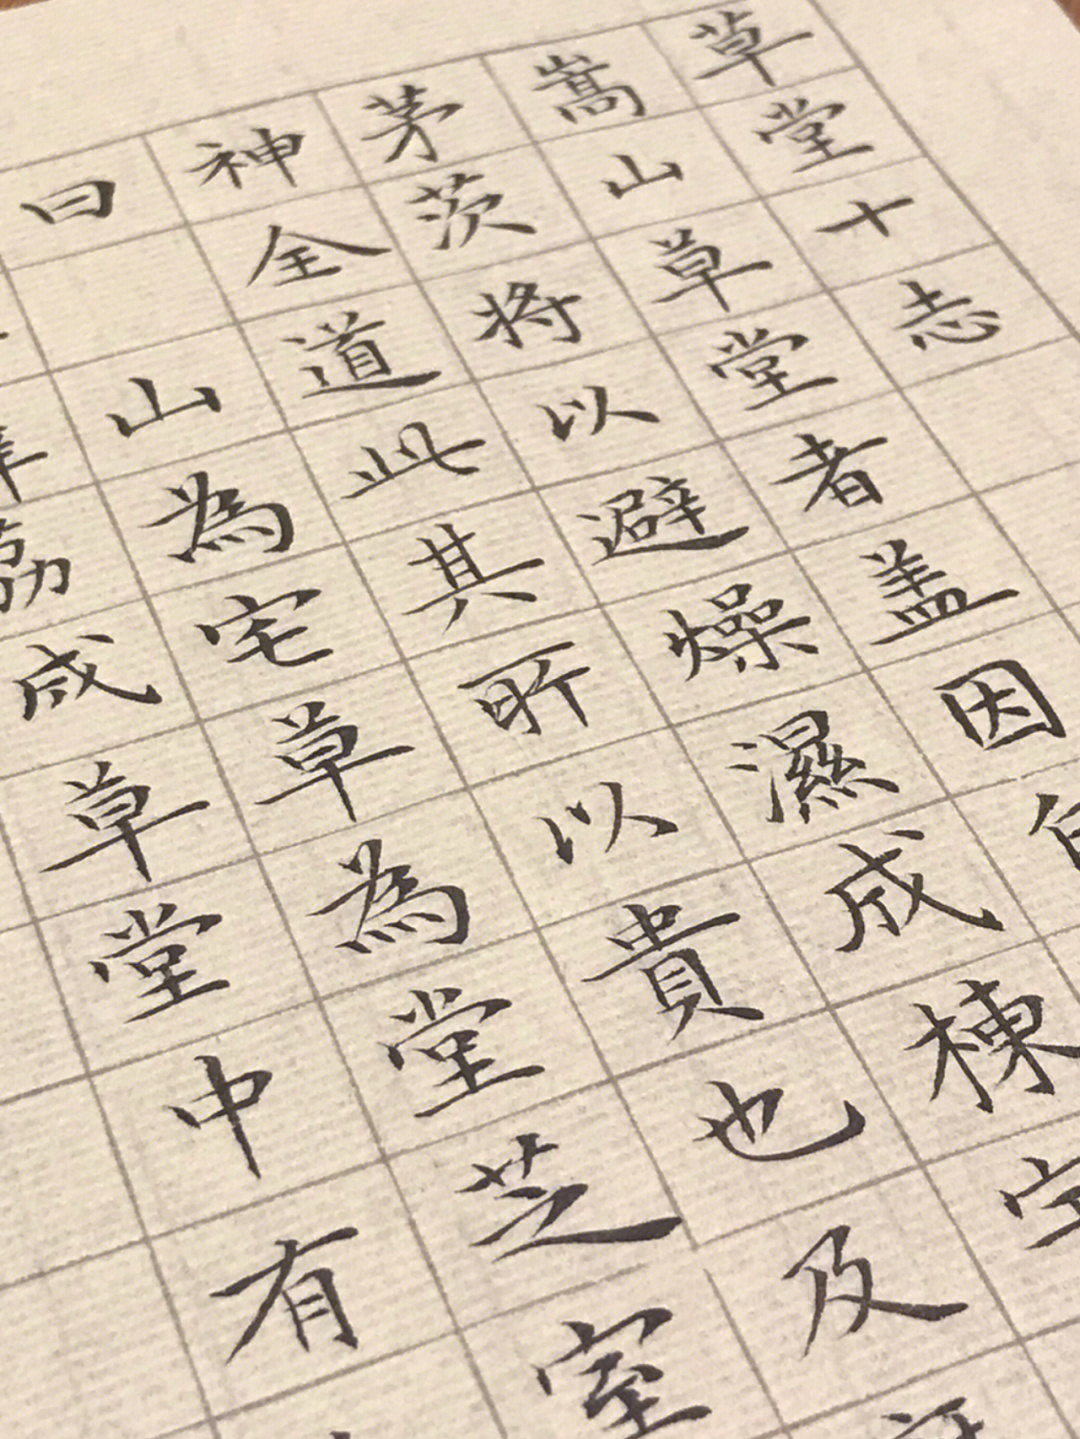 草堂十志
嵩山草堂者盖因自
茅茨将以避燥濕成棟宇
神全道此其所以貴也及
曰 山為宅草為堂芝室
荔成草堂中有